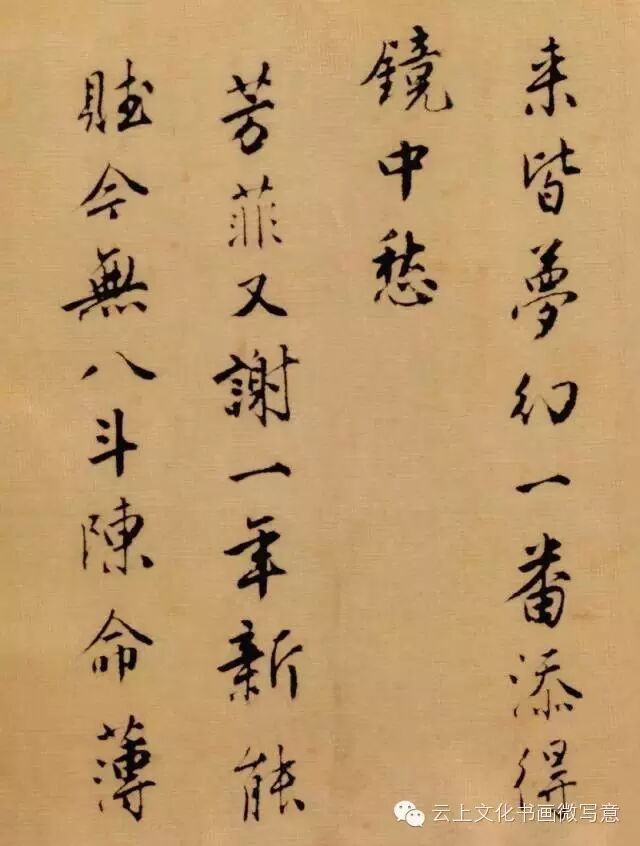 来皆夢幻一番添得
鏡中愁
芳菲又謝一年新能
賦今無八斗陳命薄
云上文化书画微写意